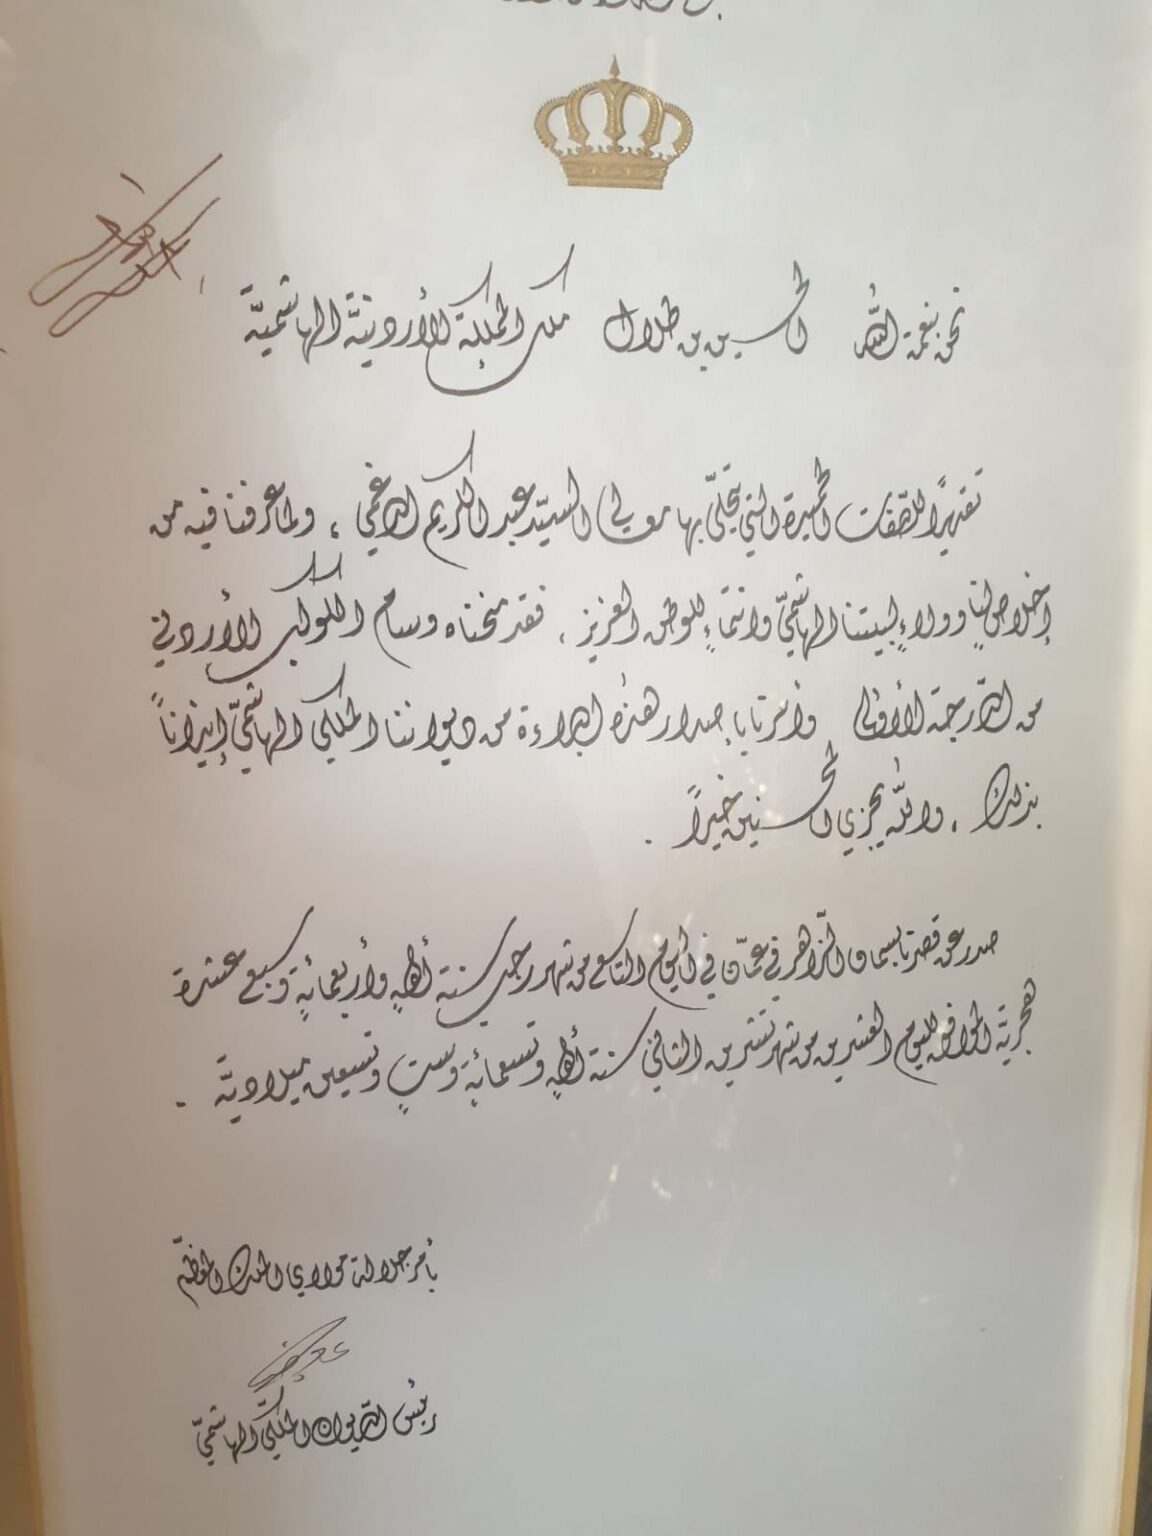 نحن بنعمة الله الحسين بن طلال ملك المملكة الأردنيّة الهاشميّة
تقديرًا للصّفات الحميدة التي تحلّى بها معالي السيّد عبد الكريم الدغمي ، ولما عرفنا فيه من
إخلاصٍ لنا وولاءٍ لبيتنا الهاشميّ وانتماءٍ للوطن العزيز ، فقد منحناه وسام الكوكب الأردني
من الدّرجة الأولى وأمرنا بإصدار هذه البراءة من ديواننا الملكي الهاشميّ إيذاناً
بذلك ، والله يجزي المحسنين خيراً .
صدر عن قصرنا بسمان الزّاهر في عمّان في اليوم التاسع من شهر رجب سنة ألفٍ وأربعمائةٍ وسبع عشرة
هجريّة الموافق لليوم العشرين من شهر تشرين الثاني سنة ألفٍ وتسعمائةٍ وستٍ وتسعين ميلاديّة .
بأمر جلالة مولاي الملك المعظّم
رئيس الدّيوان الملكيّ الهاشميّ